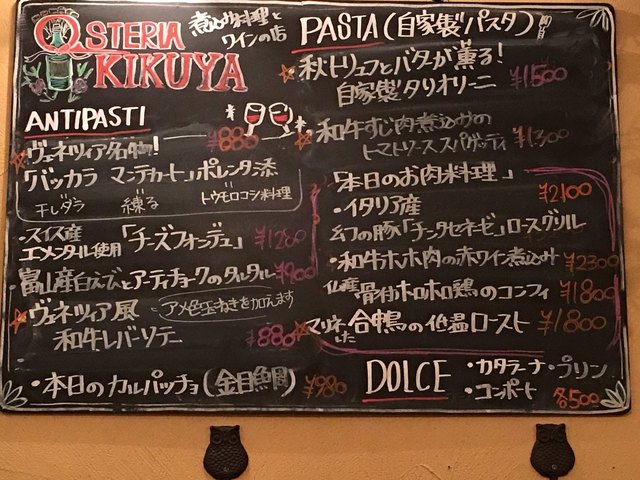 OSTERIA
KIKUYA
煮込み料理と
ワインの店
ANTIPASTI
ヴェネツィア名物! ¥880
「バッカラ マンテカート」ポレンタ添
干しダラ 練る トウモロコシ料理
・スイス産
エメンタール使用 「チーズフォンデュ」 ¥1280
・富山産白えびとアーティチョークのタルタル ¥900
ヴェネツィア風 アメ色玉ねぎを加えます
和牛レバーソテー ¥880
・本日のカルパッチョ(金目鯛) ¥980
PASTA(自家製パスタ)
秋トリュフとバターが薫る!
自家製タリオリーニ ¥1500
和牛すじ肉煮込みの
トマトソーススパゲッティ ¥1300
「本日のお肉料理」
・イタリア産 ¥2100
幻の豚「チンタセネーゼ」ロースグリル
・和牛ホホ肉の赤ワイン煮込み ¥2300
仏産骨付ホロホロ鶏のコンフィ ¥1800
マリネした合鴨の低温ロースト ¥1800
DOLCE ・カタラーナ・プリン
・コンポート 各500